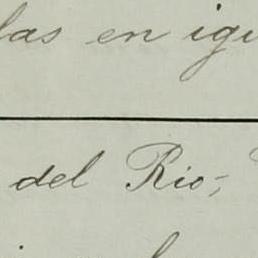 las en igu
del Rio,